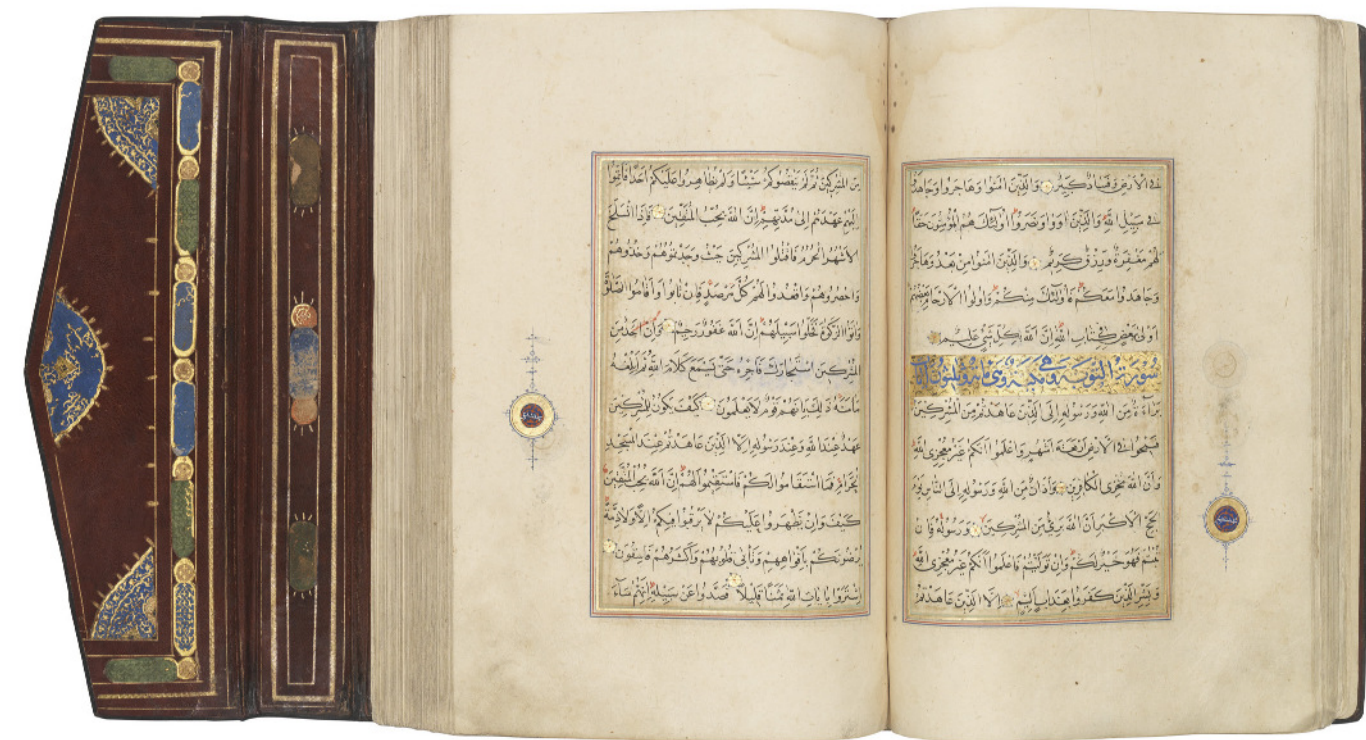 في الارض وفساد كبير والذين امنوا وهاجروا وجاهدوا
في سبيل الله والذين اووا ونصروا اولئك هم المؤمنون حقا
لهم مغفرة ورزق كريم والذين امنوا من بعد وهاجروا
وجاهدوا معكم فاولئك منكم واولوا الارحام بعضهم
اولى ببعض في كتاب الله ان الله بكل شيء عليم
سورة التوبة وهي مكية وهي مائة وثلثون آية
براءة من الله ورسوله الى الذين عاهدتم من المشركين
فسيحوا في الارض اربعة اشهر واعلموا انكم غير معجزي الله
وان الله مخزي الكافرين واذان من الله ورسوله الى الناس يوم
الحج الاكبر ان الله بريء من المشركين ورسوله فان
تبتم فهو خير لكم وان توليتم فاعلموا انكم غير معجزي الله
وبشر الذين كفروا بعذاب اليم الا الذين عاهدتم
من المشركين ثم لم ينقصوكم شيئا ولم يظاهروا عليكم احدا فاتموا
اليهم عهدهم الى مدتهم ان الله يحب المتقين فاذا انسلخ
الاشهر الحرم فاقتلوا المشركين حيث وجدتموهم وخذوهم
واحصروهم واقعدوا لهم كل مرصد فان تابوا واقاموا الصلوة
واتوا الزكوة فخلوا سبيلهم ان الله غفور رحيم وان احد من
المشركين استجارك فاجره حتى يسمع كلام الله ثم ابلغه
مامنه ذلك بانهم قوم لا يعلمون كيف يكون للمشركين
عهد عند الله وعند رسوله الا الذين عاهدتم عند المسجد
الحرام فما استقاموا لكم فاستقيموا لهم ان الله يحب المتقين
كيف وان يظهروا عليكم لا يرقبوا فيكم الا ولا ذمة
يرضونكم بافواههم وتأبى قلوبهم واكثرهم فاسقون
اشتروا بايات الله ثمنا قليلا فصدوا عن سبيله انهم ساء